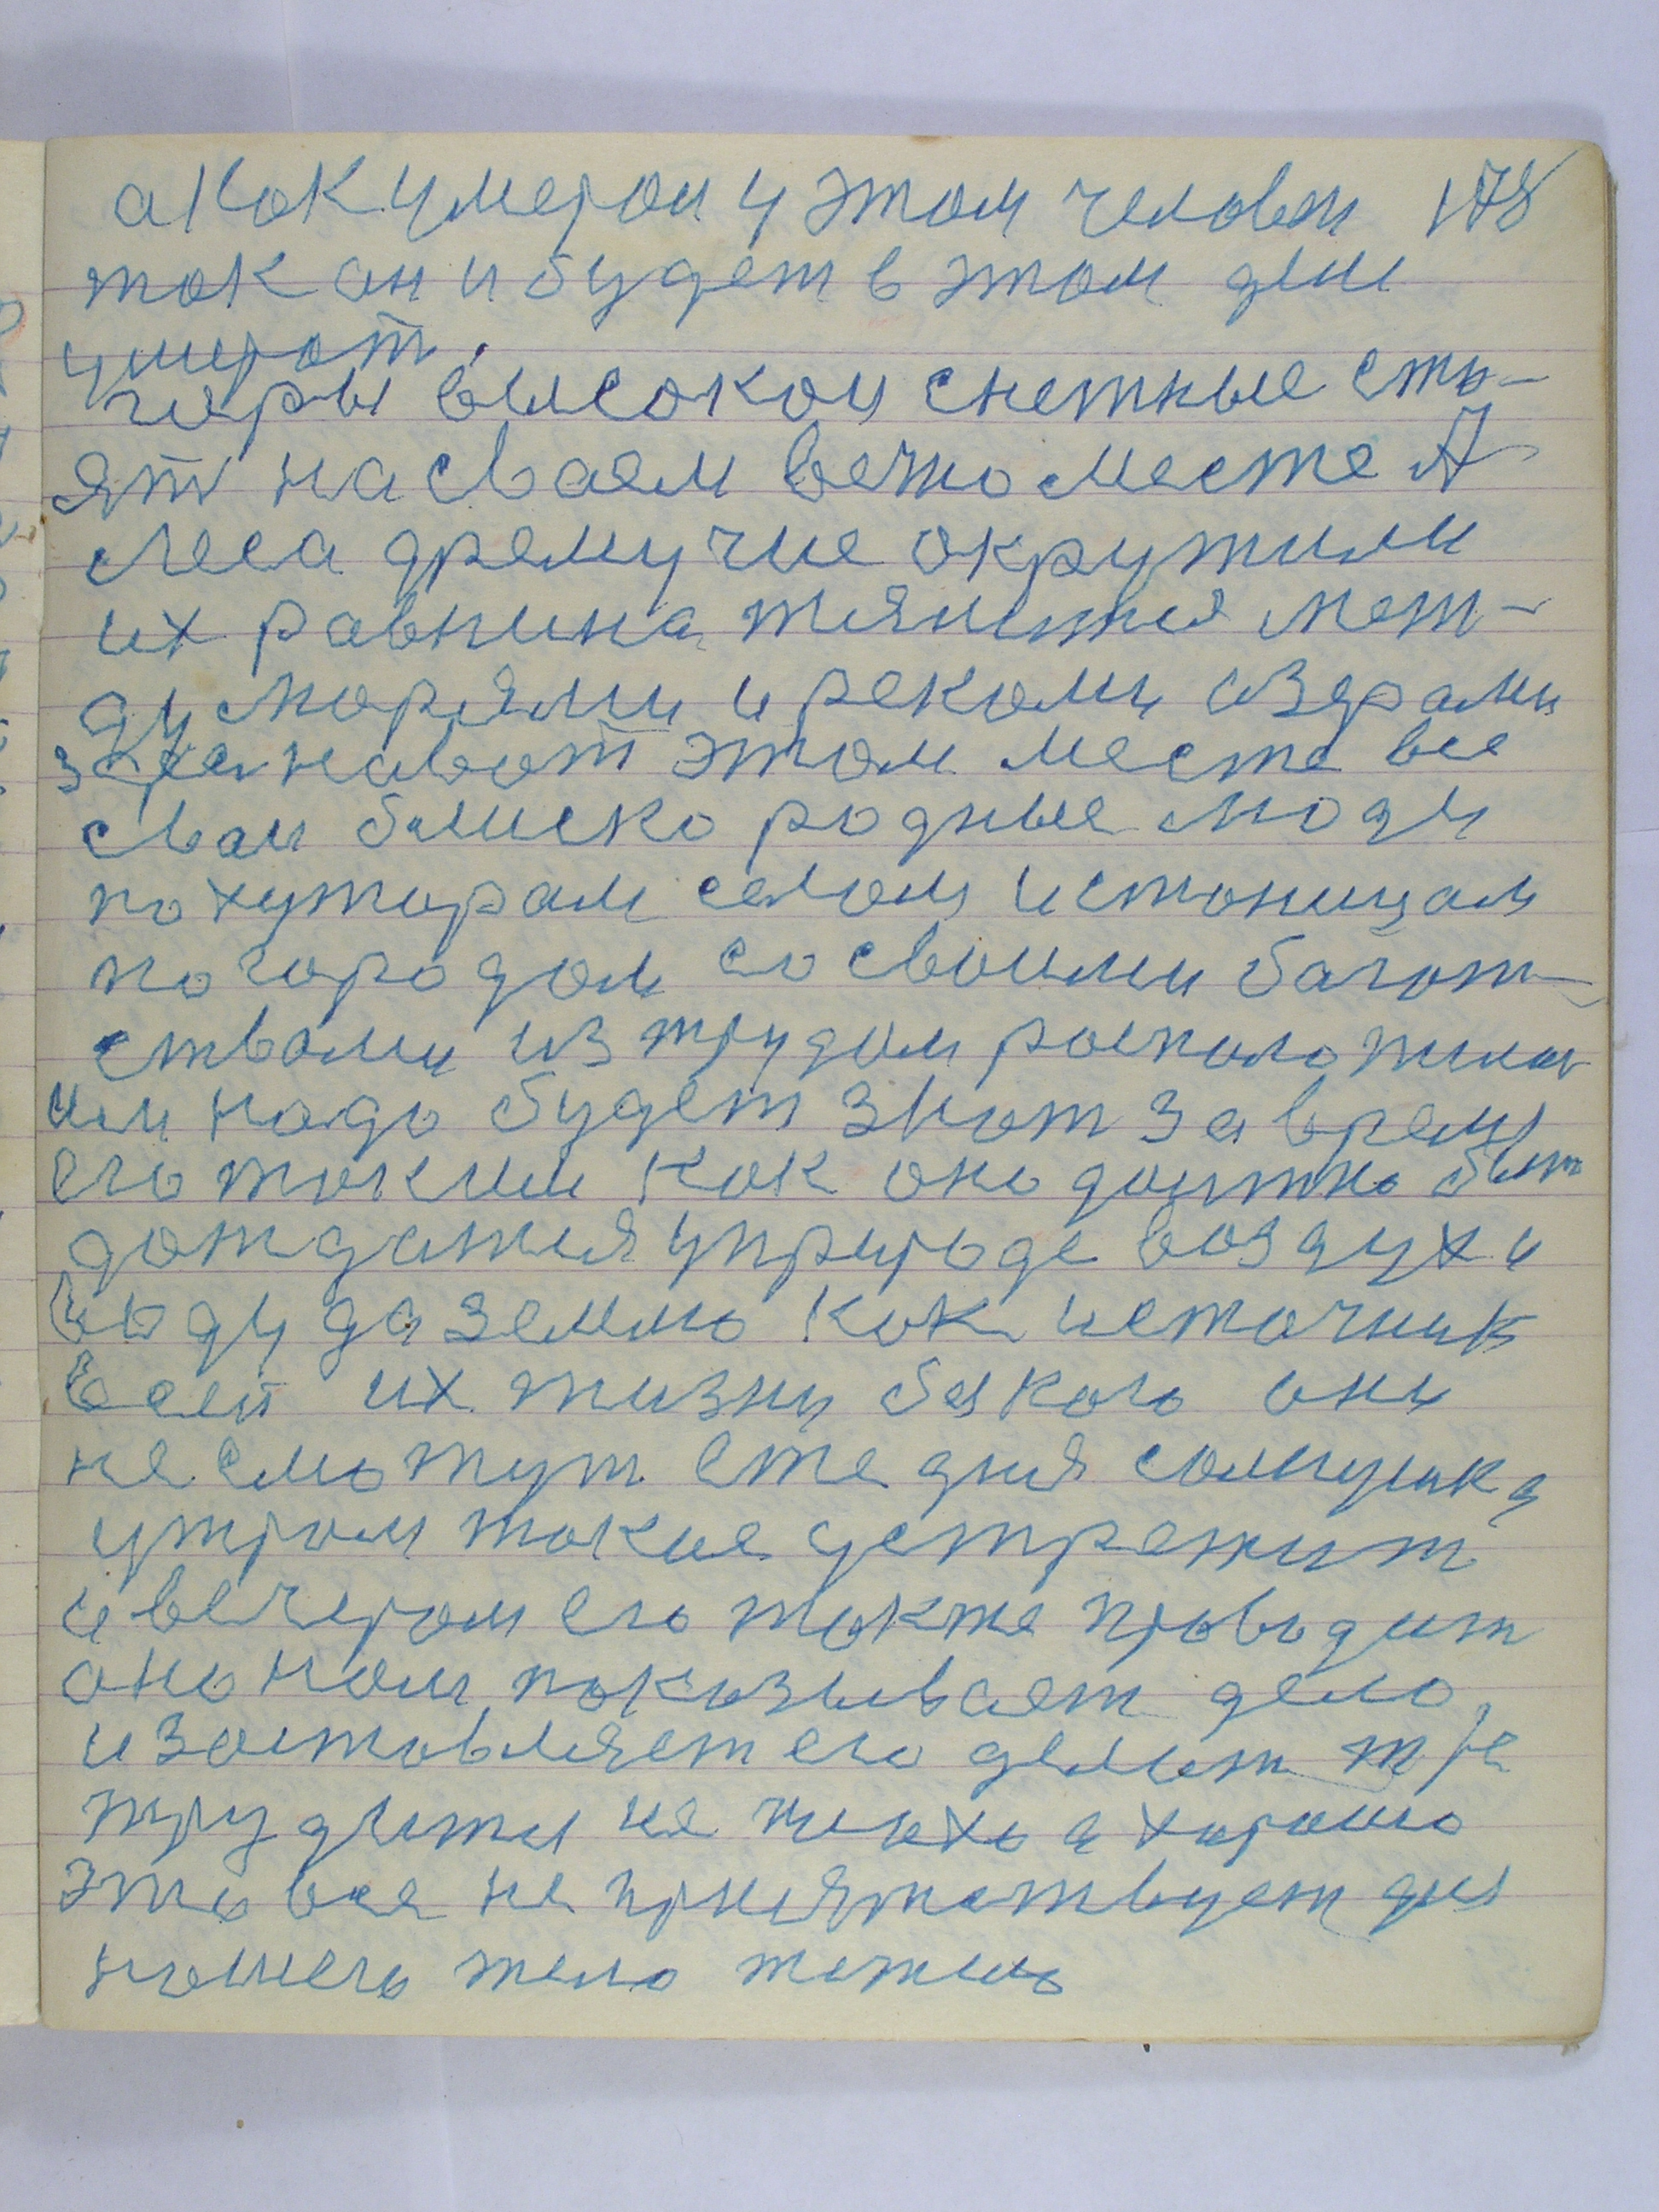 а как умерал у этом человек 178
так он и будет в этом деле
умерат.
горы высокои снежные сто-
ят на сваем вечно месте А
леса дремучие окружили
их равнина тянится меж-
ду морями и реками изерами
этом месте все
сваи блиско родные люди
по хуторам селам и станицам
по городам со своими багот-
ствоми из трудом расположилис
им надо будет знат за время
его таким как оно должно быт
дождатся у природе воздух и
воду да землю как источник
всей их жизни без кого они
не сможут ети дня солнушка
утром такие устрежит
и вечером его также проводит
оно нам показывает дело
изаставляет его делит
трудится не плохо а хорошо
это все не приятствует для
нашего тело